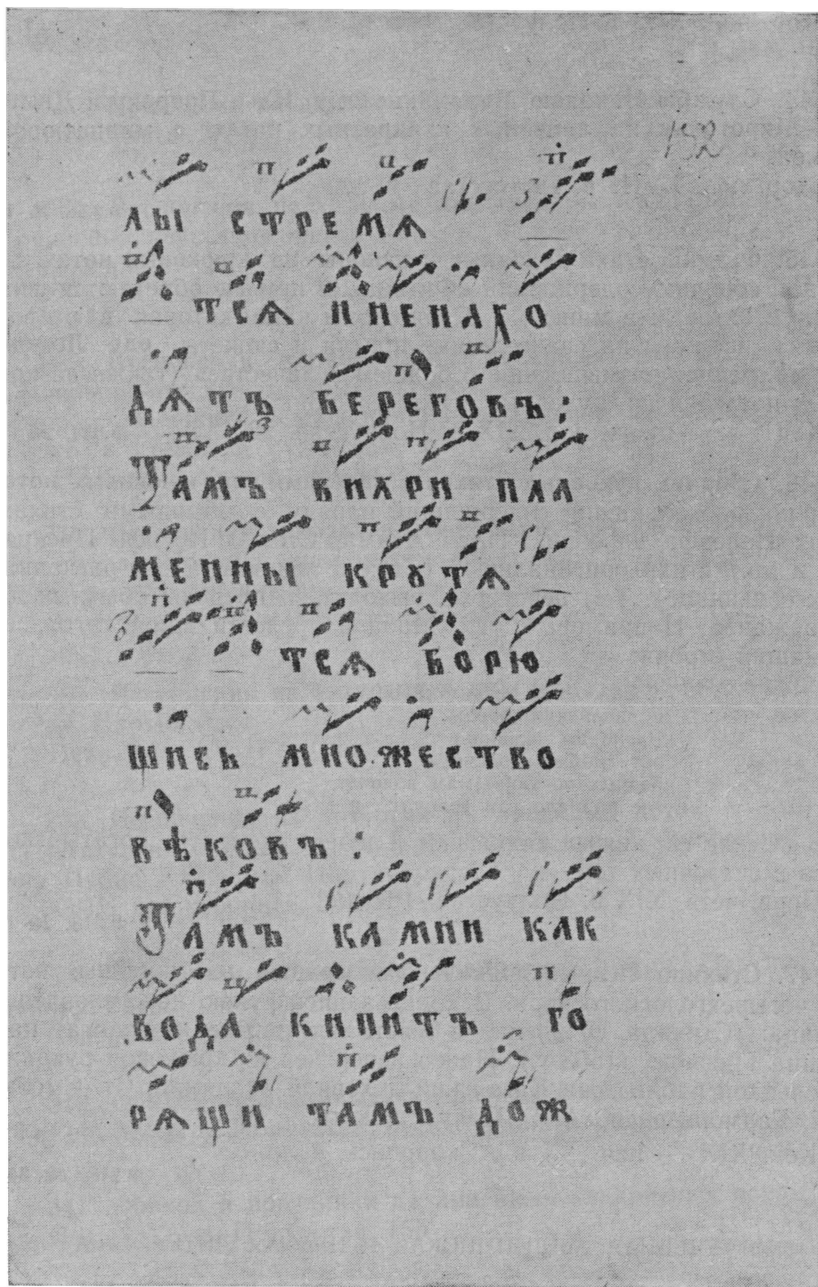 ЛЫ СТРЕМѦ
ТСѦ ИНЕНАХО
ДѦТЪ БЕРЕГОВЪ:
ТАМЪ ВИХРИ ПЛА
МЕННЫ КРꙊТѦ
ТСѦ БОРЮ
ЩИСЬ МНОЖЕСТВО
ВѢКОВЪ:
ТАМЪ КАМНИ КАК
ВОДА КИПИТЪ. ГО
РѦЩИ ТАМЪ ДОЖ